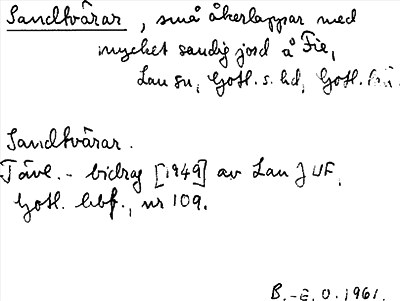 Sandtvärar, små åkerlappar med
mycket sandig jord å Fie,
Lau sn, Gotl. s. hd, Gotl. län.
Sandtvärar.
Tävl. - bidrag [1949] av Lau JUF,
Gotl. hbf., nr 109.
B.-E. O. 1961.